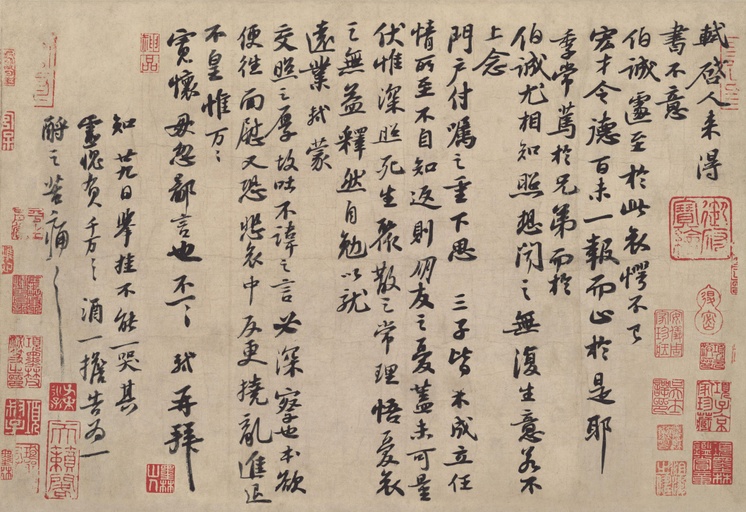 軾啓人来得
書不意
伯誠遽至於此哀愕不已
宏才令德百未一報而止於是耶
季常篤於兄弟而於
伯誠尤相知照想聞之無復生意若不
上念
門戶付囑之重下思 三子皆未成立任
情所至不自知返則朋友之憂蓋未可量
伏惟深照死生聚散之常理悟憂哀
之無益釋然自勉以就
遠業軾蒙
交照之厚故吐不諱之言必深察也本欲
便往面慰又恐悲哀中反更撓亂進退
不皇惟万〻
寬懷毋忽鄙言也不一〻 軾再拜
知廿九日舉挂不能一哭其
靈愧負千万〻酒一擔告為一
酹之苦痛〻
御府寶繪
項子京家珍藏
安儀周家珍藏
神品
天籟閣